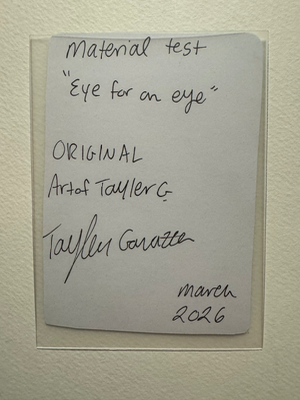 Material test
"Eye for an eye"
ORIGINAL
Art of Tayler G.
Tayler
March
2026